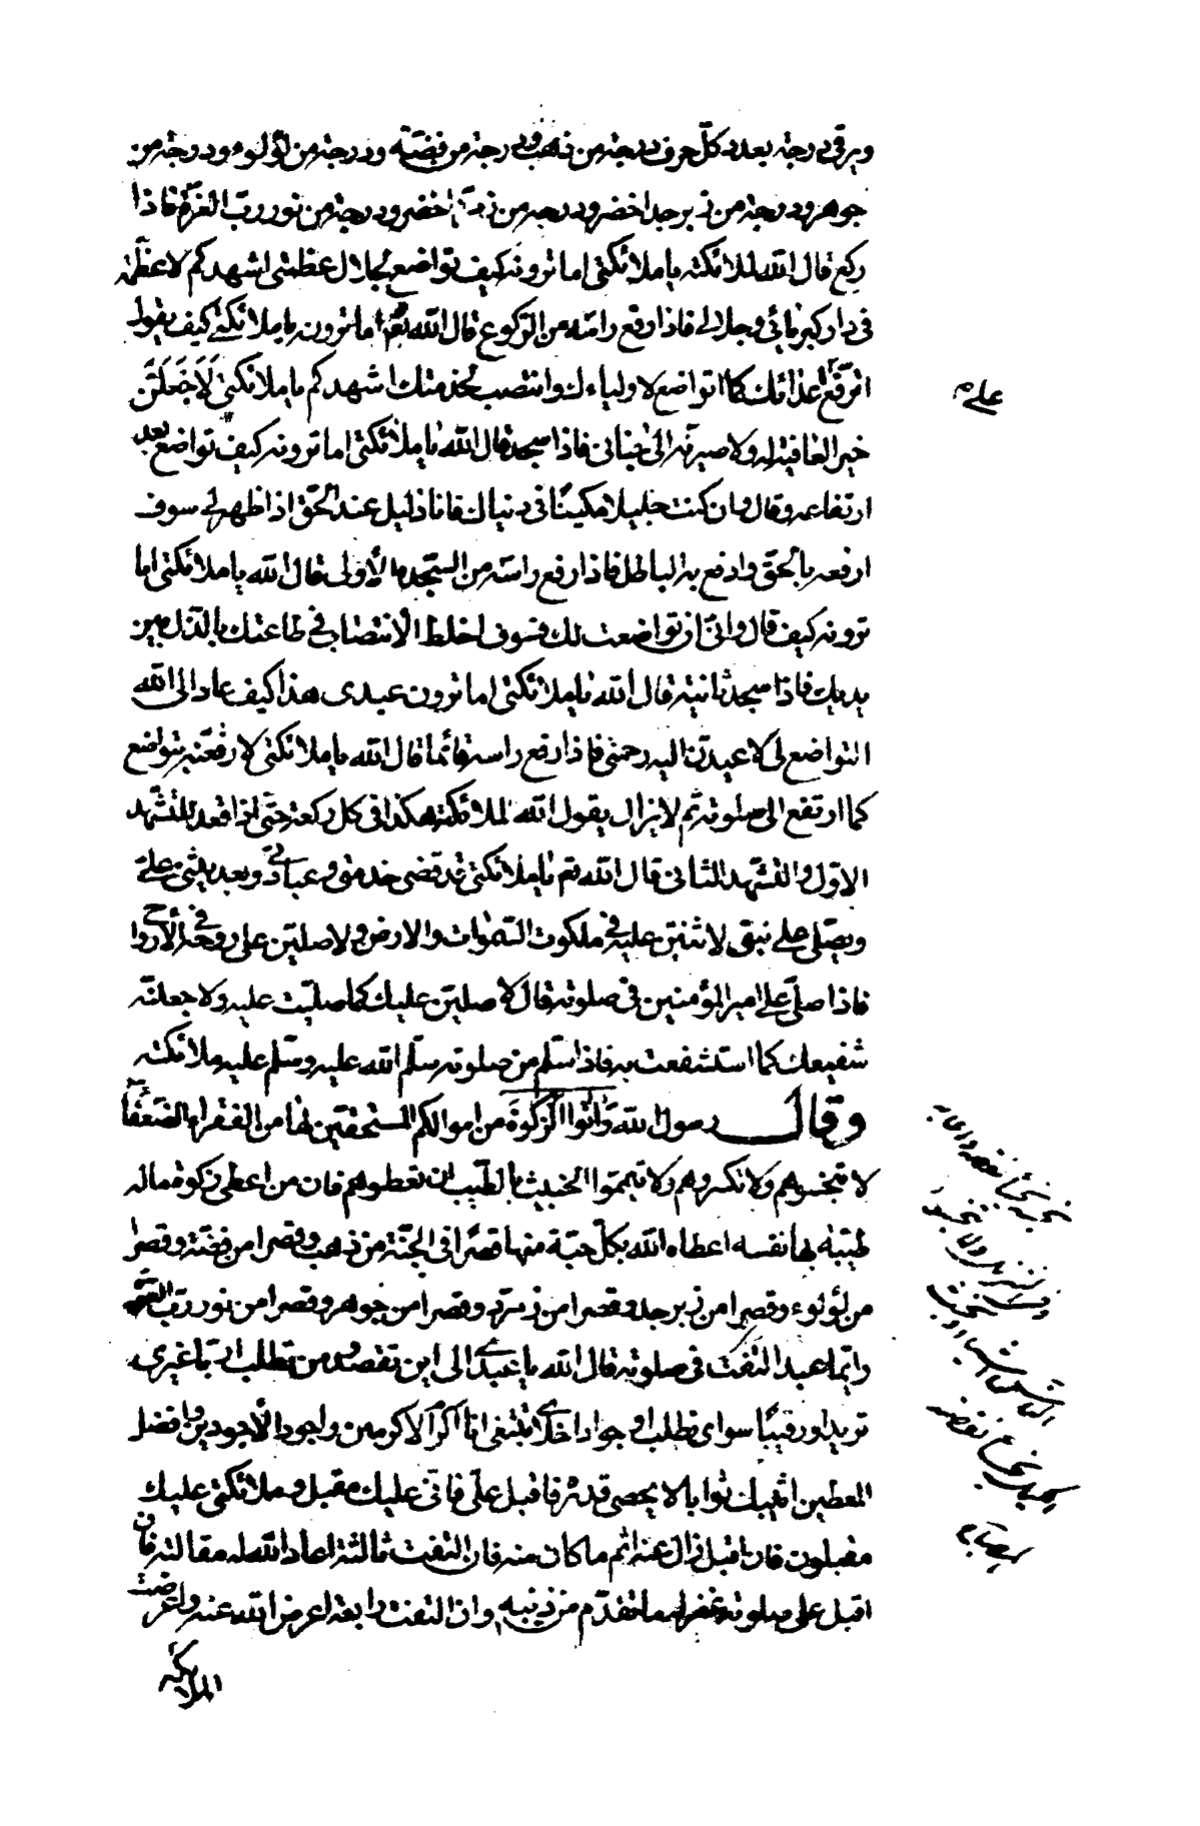 ويرقى درجة بعدد كل حرف درجة من ذهب ودرجة من فضة ودرجة من لؤلؤ ودرجة من
جوهر ودرجة من زبرجد اخضر ودرجة من زمرد اخضر ودرجة من نور رب العزة فاذا
ركع قال الله لملائكته يا ملائكتي اما ترونه كيف تواضع لجلال عظمتي اشهدكم لاعظمنه
في دار كبريائي وجلالي فاذا رفع راسه من الركوع قال الله تعم اما ترونه يا ملائكتي كيف يقول
اترفع على اعدائك كما اتواضع لاوليائك وانتصب لخدمتك اشهدكم يا ملائكتي لَاَجْعَلَنَّ
خير العاقبة له ولاصيرنه الى جناني فاذا سجد قال الله يا ملائكتي اما ترونه كيف تواضع بعد
ارتفاعه وقال وان كنت جليلا مكينًا في دنياك فانا ذليل عند الحق اذا ظهر لي سوف
ارفعه بالحق وادفع به الباطل فاذا رفع راسه من السجدة الأولى قال الله يا ملائكتي اما
ترونه كيف قال واني ان تواضعت لك فسوف اخلط الانتصاب في طاعتك بالذل بين
يديك فاذا سجد ثانية قال الله يا ملائكتي اما ترون عبدى هذا كيف عاد الى الله
التواضع لي لاعيدن اليه رحمتي فاذا رفع راسه قائما قال الله يا ملائكتي لارفعنه بتواضع
كما ارتفع الى صلوته ثم لا يزال يقول الله لملائكته هكذا في كل ركعة حتى اذا قعد للتشهد
الاول والتشهد الثاني قال الله تعم يا ملائكتي قد قضى خدمتي وعبادتي وقعد يثني علي
ويصلي على نبيي لاثنين عليه في ملكوت السموات والارض ولاصلين على روحه في الأرواح
فاذا صلى على امير المؤمنين في صلوته قال لاصلين عليك كما صليت عليه ولاجعلنه
شفيعك كما استشفعت به فاذا سلم من صلوته سلم الله عليه وسلم عليه ملائكته
وقال رسول الله وَاٰتُوا الزَّكٰوةَ من اموالكم المستحقين لها من الفقراء والضعفاء
لا تبخسوهم ولا تكسروهم ولا تيمموا الخبيث بالطيب ان تعطوهم فان من اعطى زكوة ماله
طيبة بها نفسه اعطاه الله بكل حبة منها قصرًا في الجنة من ذهب وقصرا من فضة وقصرا
من لؤلوء وقصرا من زبرجد وقصرا من زمرد وقصرا من جوهر وقصرا من نور رب العزة
وايما عبد التفت في صلوته قال الله يا عبدي الى اين تقصد ومن تطلب اربا غيرى
تريد او رقيبًا سواى تطلب او جوادا خلاي تبتغي انا اكرم الاكرمين واجود الأجودين وافضل
المعطين اثيبك ثوابا لا يحصى قدره فاقبل علي فاني عليك مقبل وملائكتي عليك
مقبلون فان اقبل زال عنه اثم ما كان منه فان التفت ثالثة اعاد الله له مقالته فان
اقبل على صلوته غفر له ما تقدم من ذنبه وان التفت رابعة اعرض الله عنه واعرضت
الملائكة
على